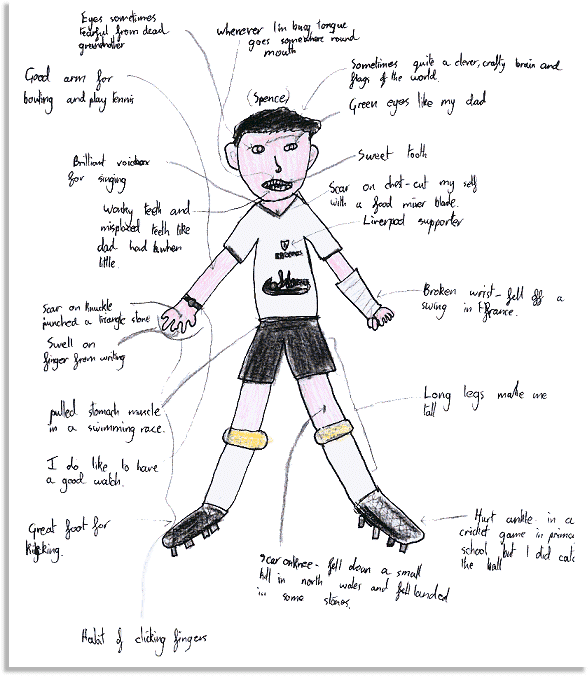 Eyes sometimes
tearful from dead
grandmother
wherever I'm busy tongue
goes somewhere round
mouth
Sometimes quite a clever, crafty brain and
flags of the world.
Good arm for
bowling and play tennis
(Spence)
Green eyes like my dad
Brilliant voicebox
for singing
Sweet tooth
Wonky teeth and
misplaced teeth like
dad had when
little.
Scar on chest-cut my self
with a food mixer blade.
Liverpool supporter
Scar on knuckle
punched a triangle stone
Swell on
finger from writing
Broken wrist - fell off a
swing in France.
pulled stomach muscle
in a swimming race.
Long legs make me
tall
I do like to have
a good watch.
Great foot for
kicking.
Hurt ankle in a
cricket game in
school but I did
the ball
Scar on knee - fell down a small
hill in north wales and landed
in some stones.
Habit of clicking fingers